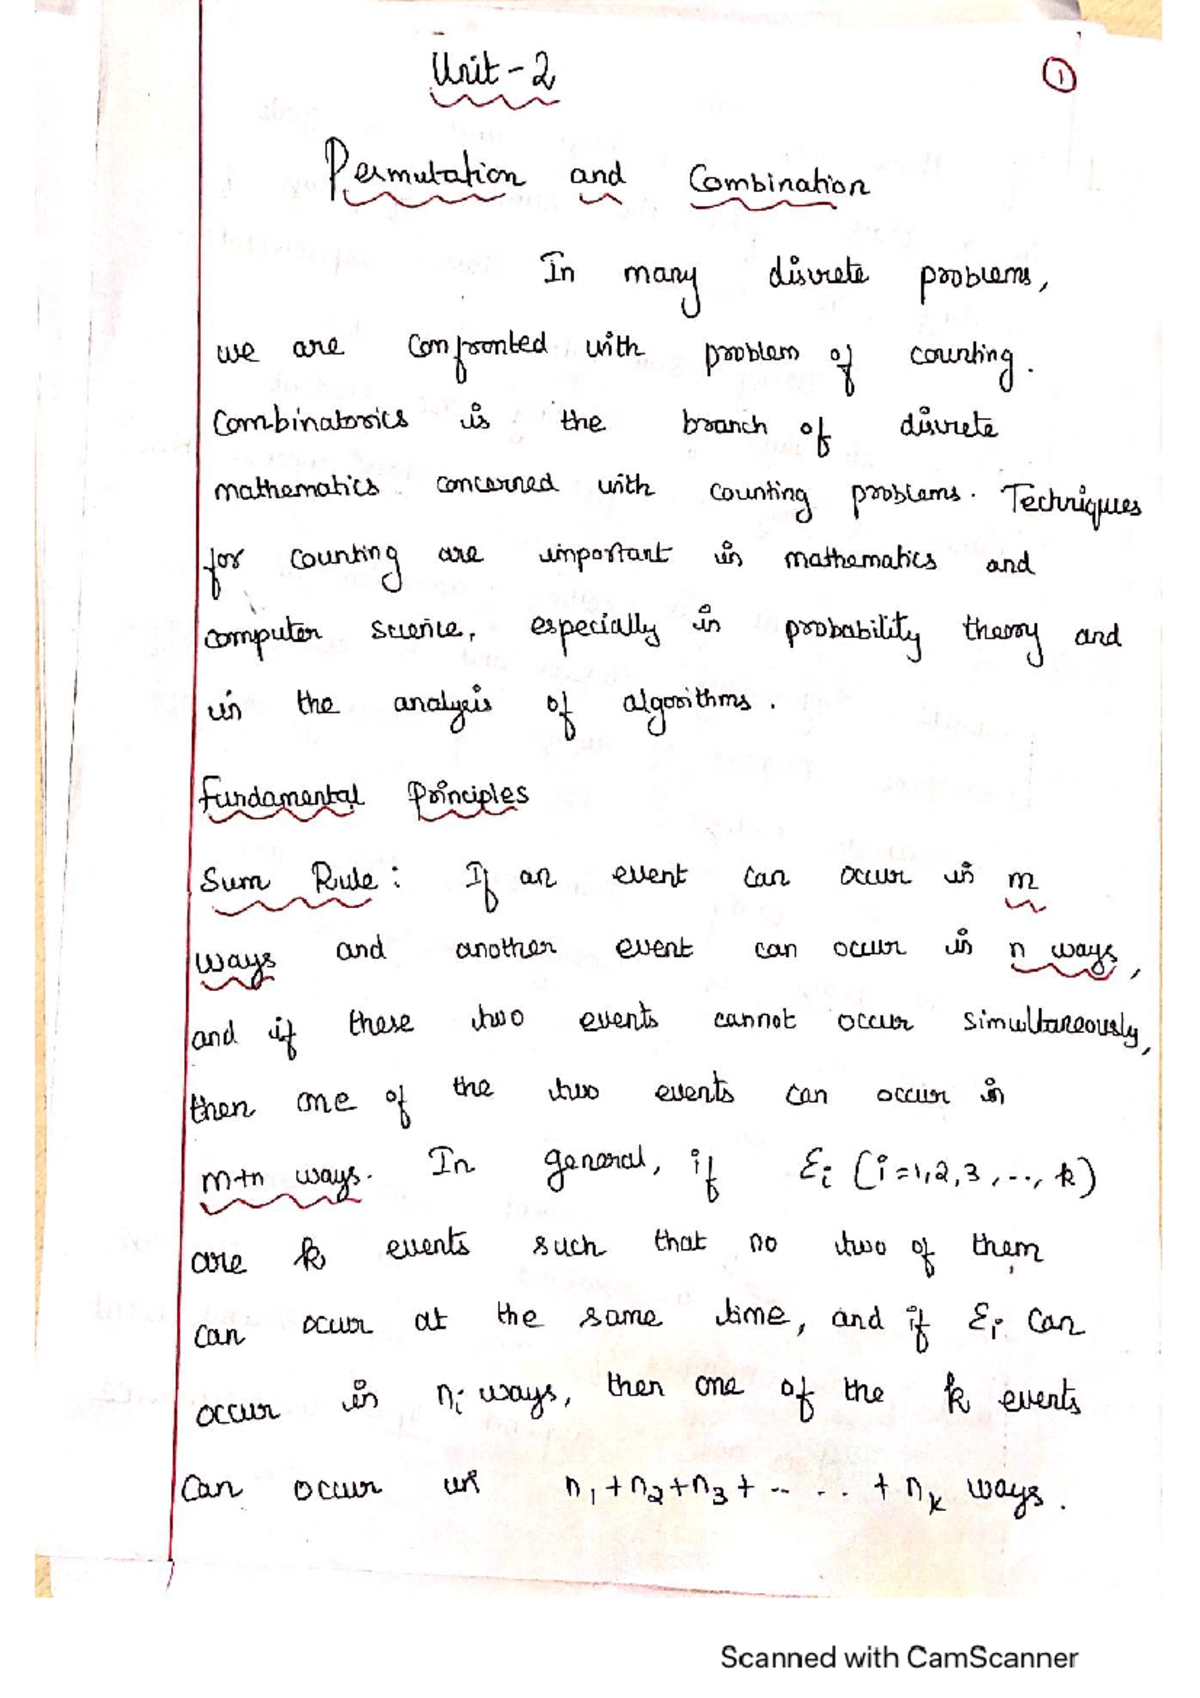 Unit - 2
1
Permutation and Combination
In many discrete problems,
we are confronted with problem of counting.
Combinatorics is the branch of discrete
mathematics concerned with counting problems. Techniques
for counting are important in mathematics and
computer science, especially in probability theory and
in the analysis of algorithms.
Fundamental Principles
Sum Rule: If an event can occur in m
ways and another event can occur in n ways,
and if these two events cannot occur simultaneously,
then one of the two events can occur in
m+n ways. In general, if Ei (i=1,2,3,..., k)
are k events such that no two of them
can occur at the same time, and if Ei can
occur in ni ways, then one of the k events
can occur in n1+n2+n3+ -- . . . + nk ways.
Scanned with CamScanner